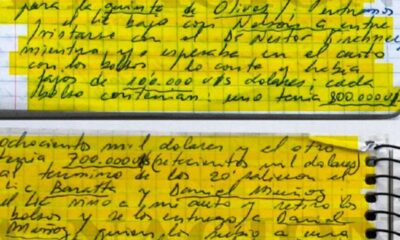 para la quinta de Olivos / entramos
el Lic bajo con Nelson a entre
vistarse con el Dr Nestor Kirchner
mientra yo esperaba en el auto
con los bolsos / Me consta había
fajos de 100.000 U$S dolares. cada
bolso contenian: uno tenia 800.000 U$
ochociento mil dolares y el otro
tenia 700.000U$S (setecientos mil dolares)
al termino de los 20' salieron el
Lic Baratta y Daniel Muñoz
el Lic vino a mi auto y retiro los
bolsos y se los entrego a Daniel
Muñoz / quien los subio a una